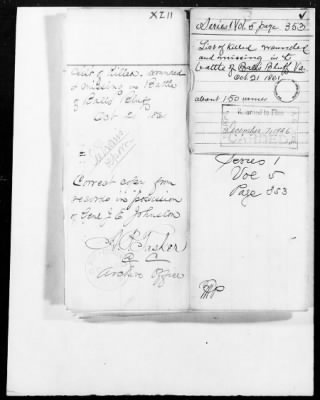 XLII
List of Killed, wounded
& missing in Battle
of Balls Bluff
Oct 21 1861
Correct copy from
records in possession
of Genl J. E. Johnston
A. P. Tasker
Archive Office
Series 1 Vol 5 page 353
List of killed wounded
and missing in the
battle of Balls Bluff, Va.
Oct 21 1861.
about 150 names
Returned to Files
December 7, 1886
Series 1
Vol 5
Page 353